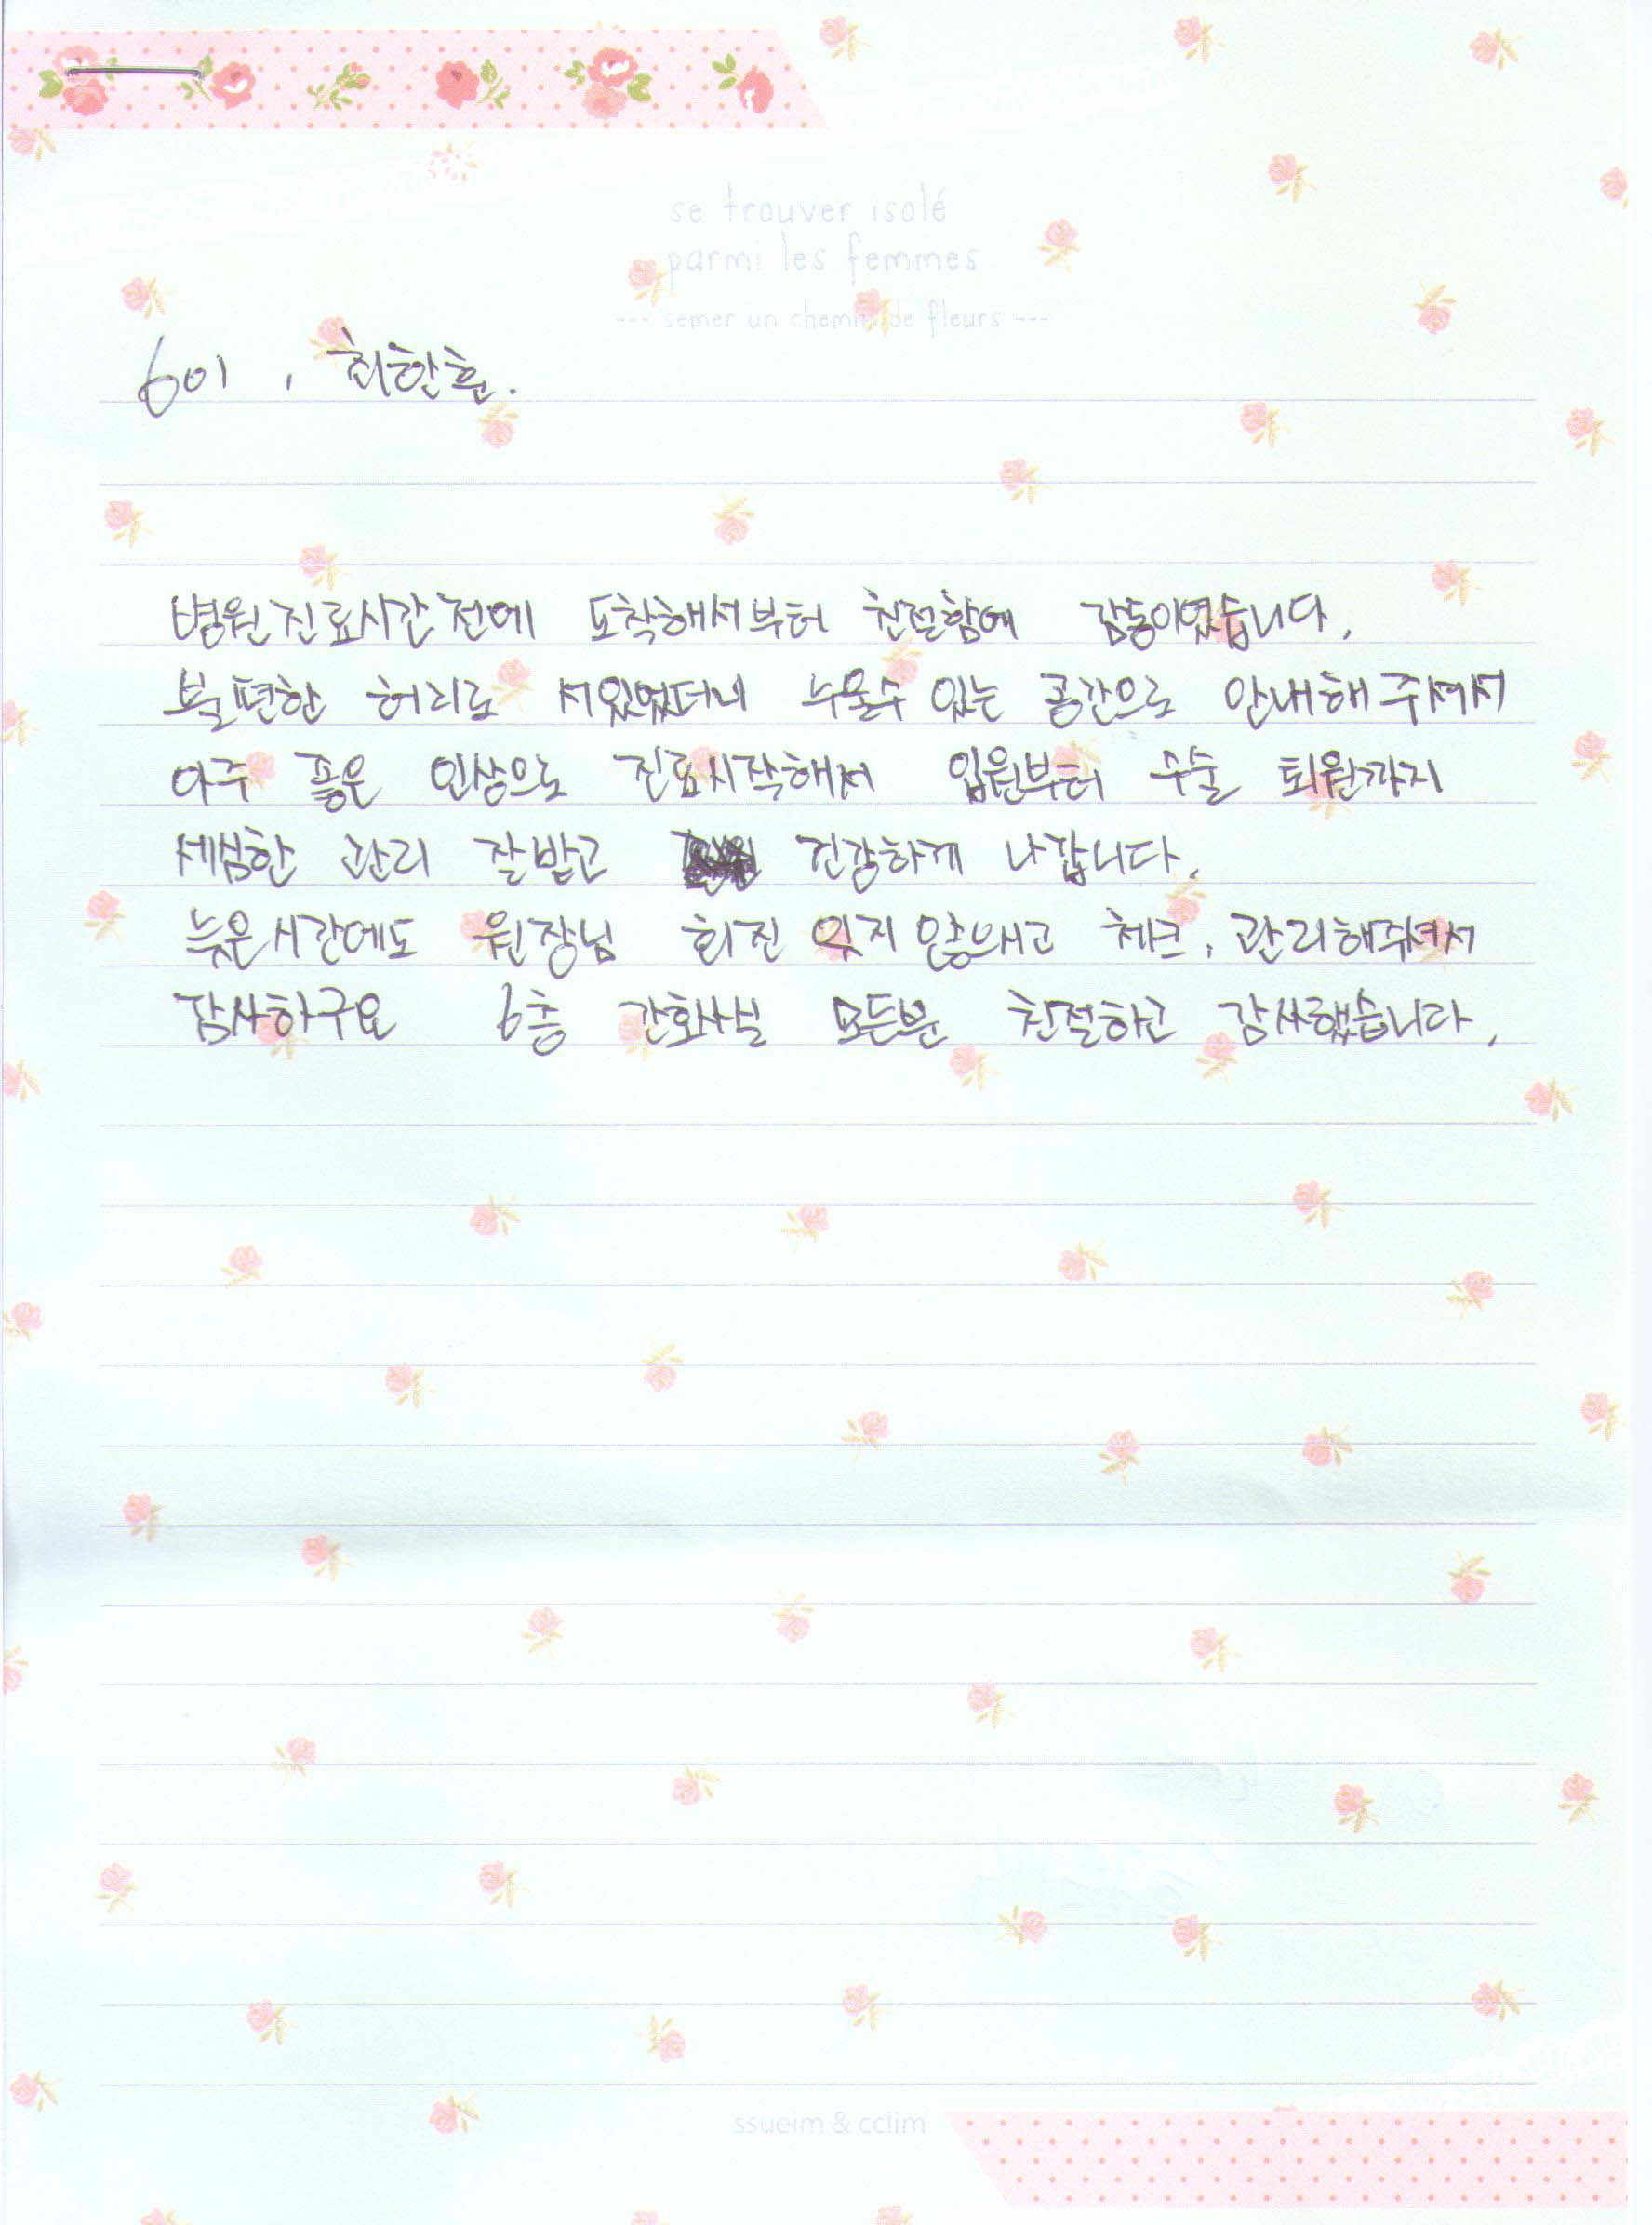 se trouver isolé
parmi les femmes
--- semer un chemin de fleurs ---
601, 최한훈.
병원진료시간전에 도착해서부터 친절함에 감동이였습니다.
불편한 허리로 서있었더니 누울수 있는 공간으로 안내해주셔서
아주 좋은 인상으로 진료시작해서 입원부터 수술 퇴원까지
세심한 관리 잘받고 건강하게 나갑니다.
늦은시간에도 원장님 회진 잊지않으시고 체크, 관리해주셔서
감사하구요 6층 간호사실 모든분 친절하고 감사했습니다.
ssueim & cclim